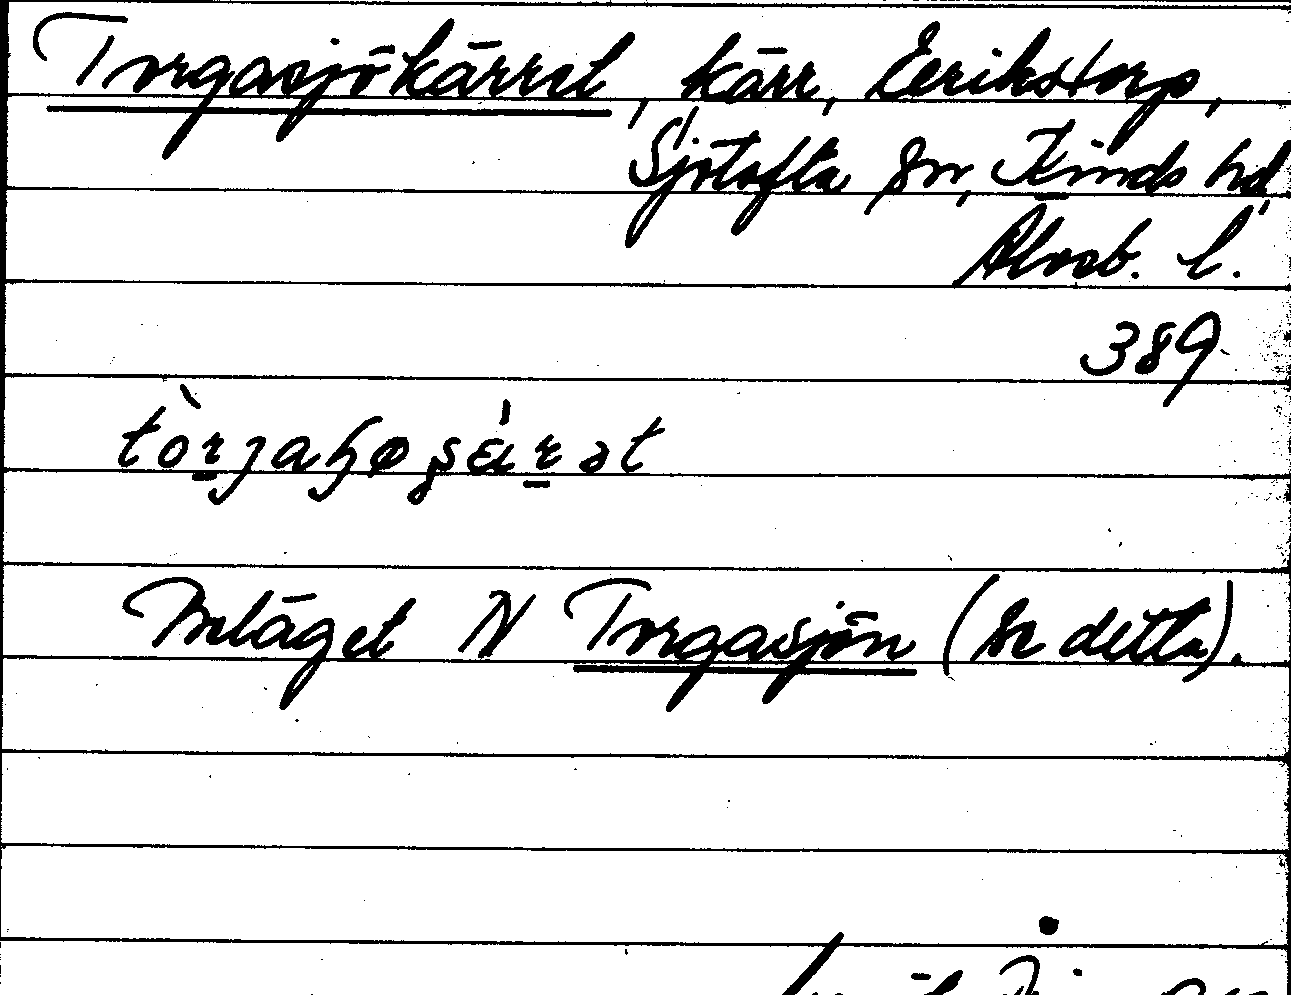 Torgasjökärret, kärr, Eerikstorp,
Sjötofta sn, Kinds hd,
Älvsb. l.
389
Beläget N Torgasjön (se detta).